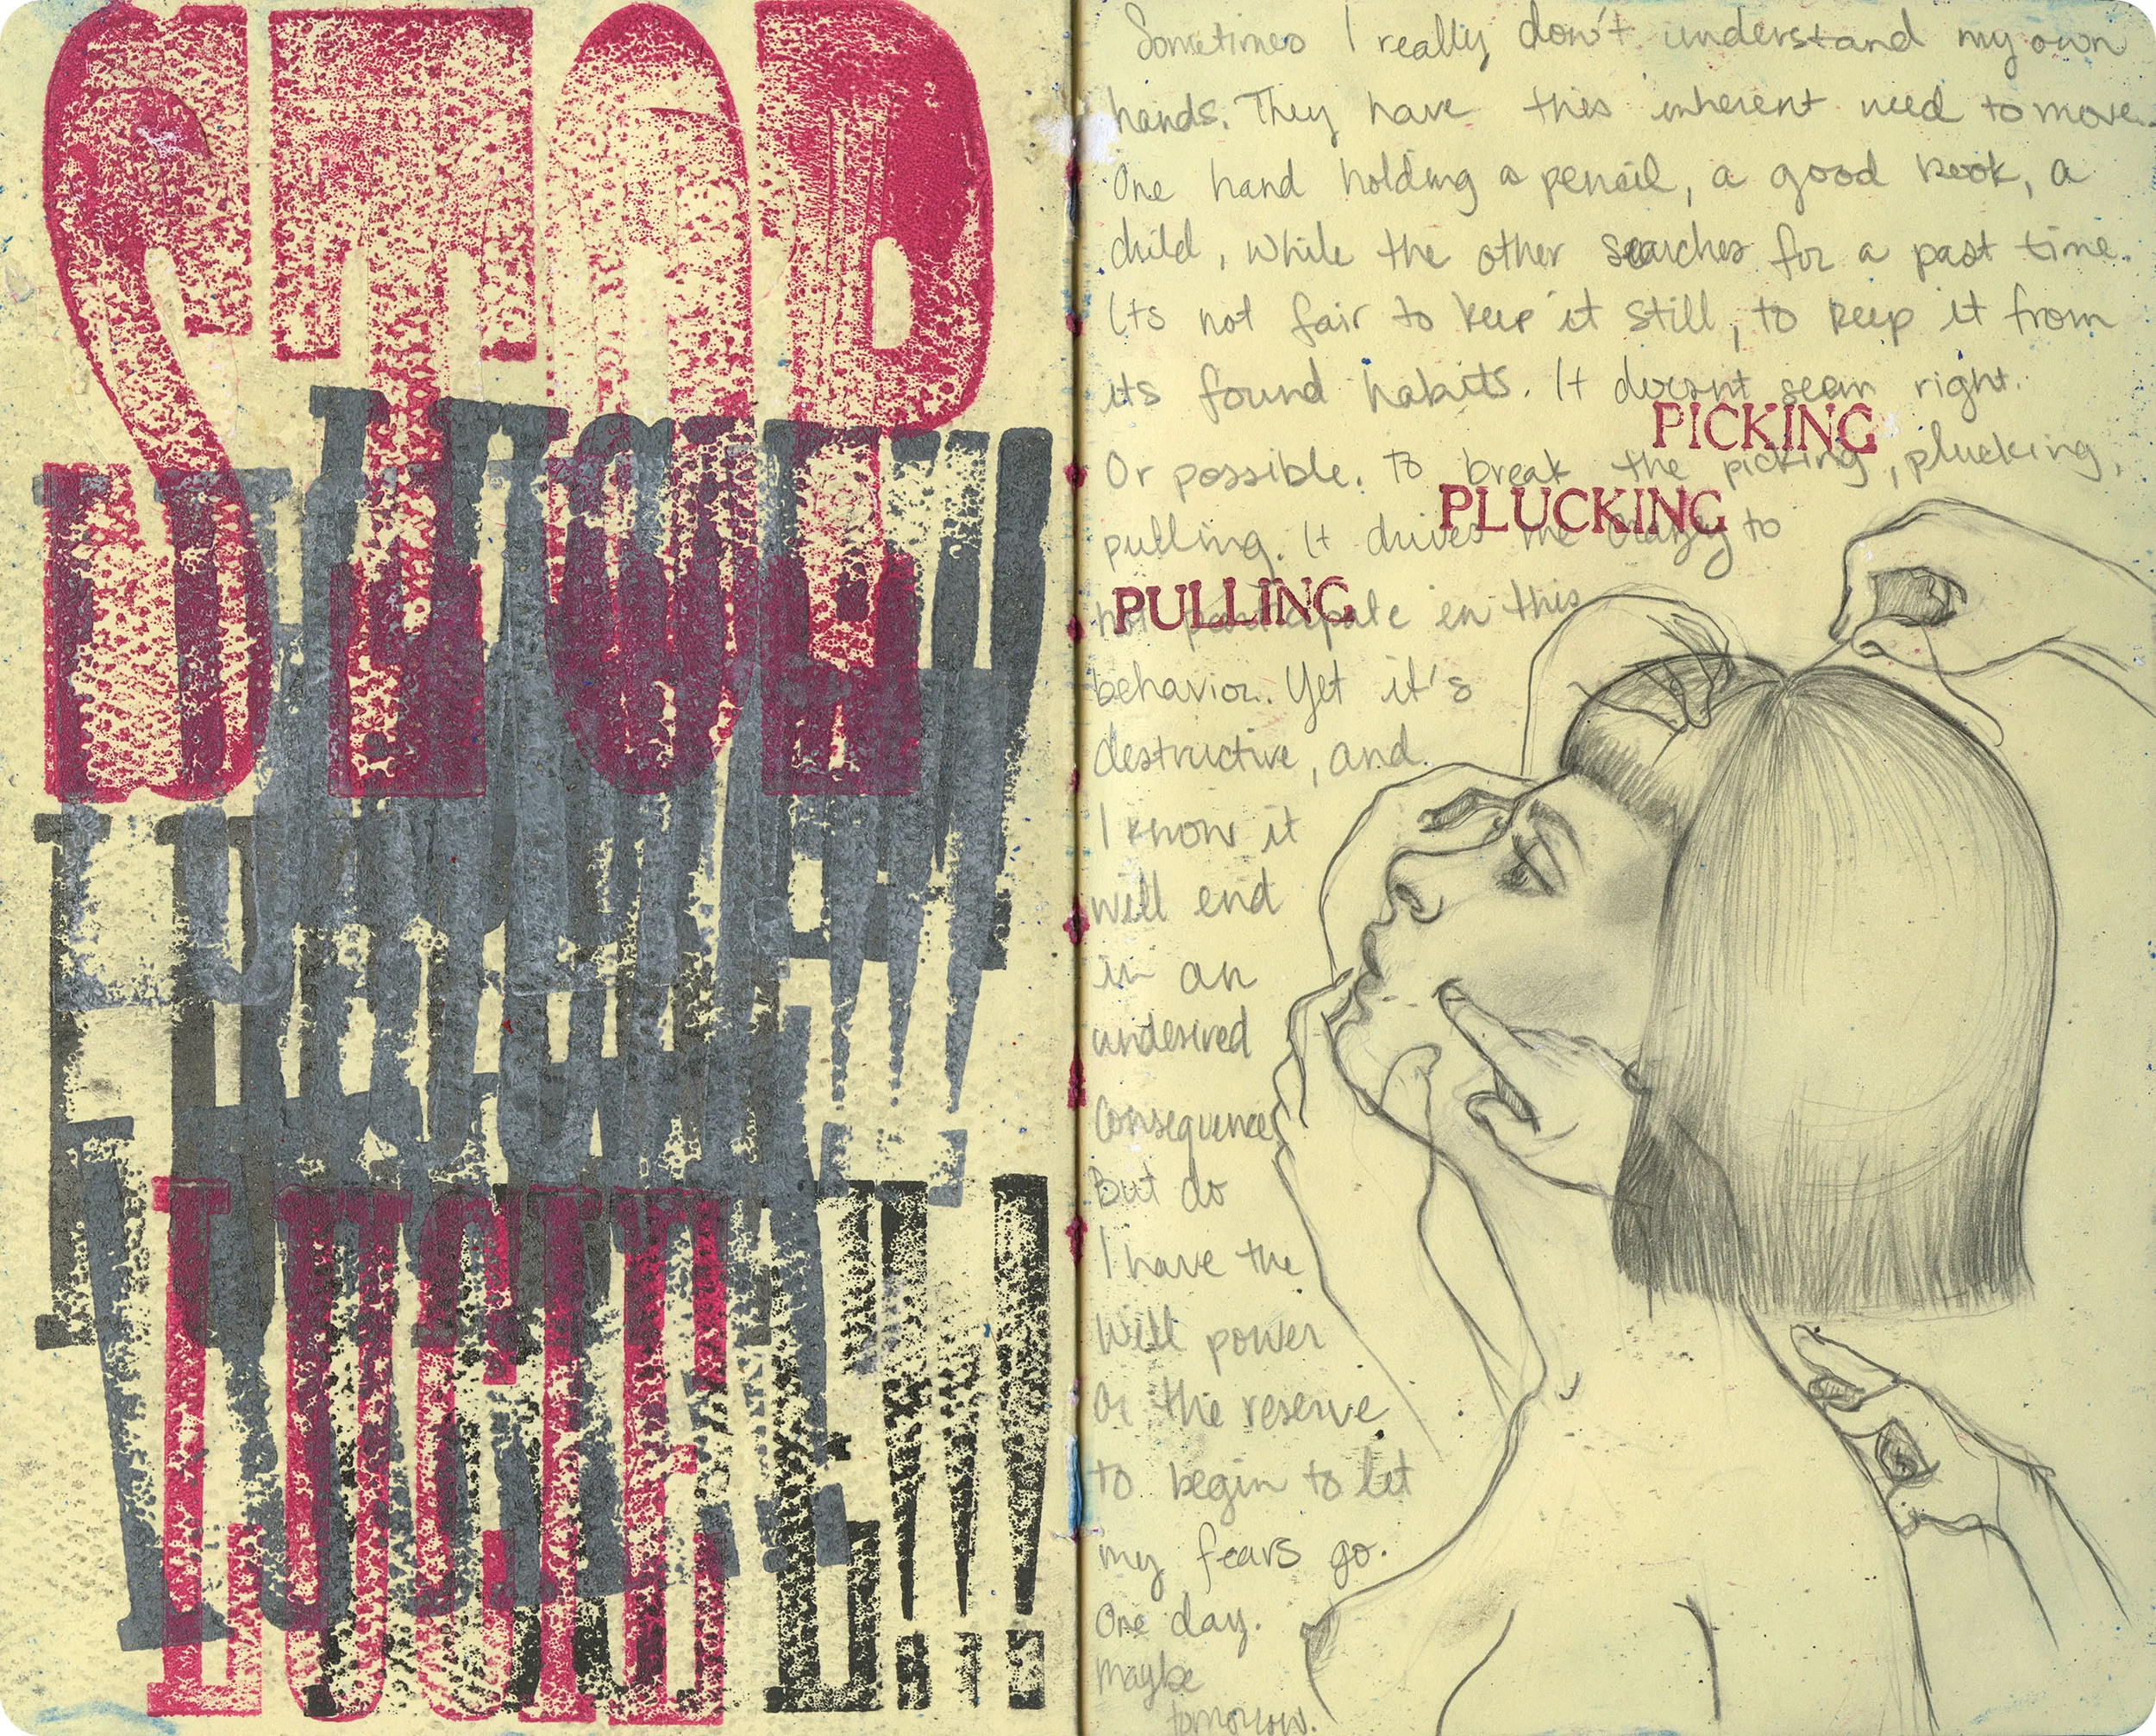 STOP
LUCIE!!!
Sometimes I really don't understand my own
hands. They have this inherent need to move.
One hand holding a pencil, a good book, a
child, while the other searches for a past time.
Its not fair to keep it still, to keep it from
its found habits. It doesnt seem right.
PICKING
Or possible. to break the picking, plucking,
PLUCKING
pulling. It drives me crazy to
PULLING
not participate in this
behavior. Yet it's
destructive, and
I know it
will end
in an
undesired
consequence
But do
I have the
will power
Or the reserve
to begin to let
my fears go.
One day.
Maybe
tomorrow.